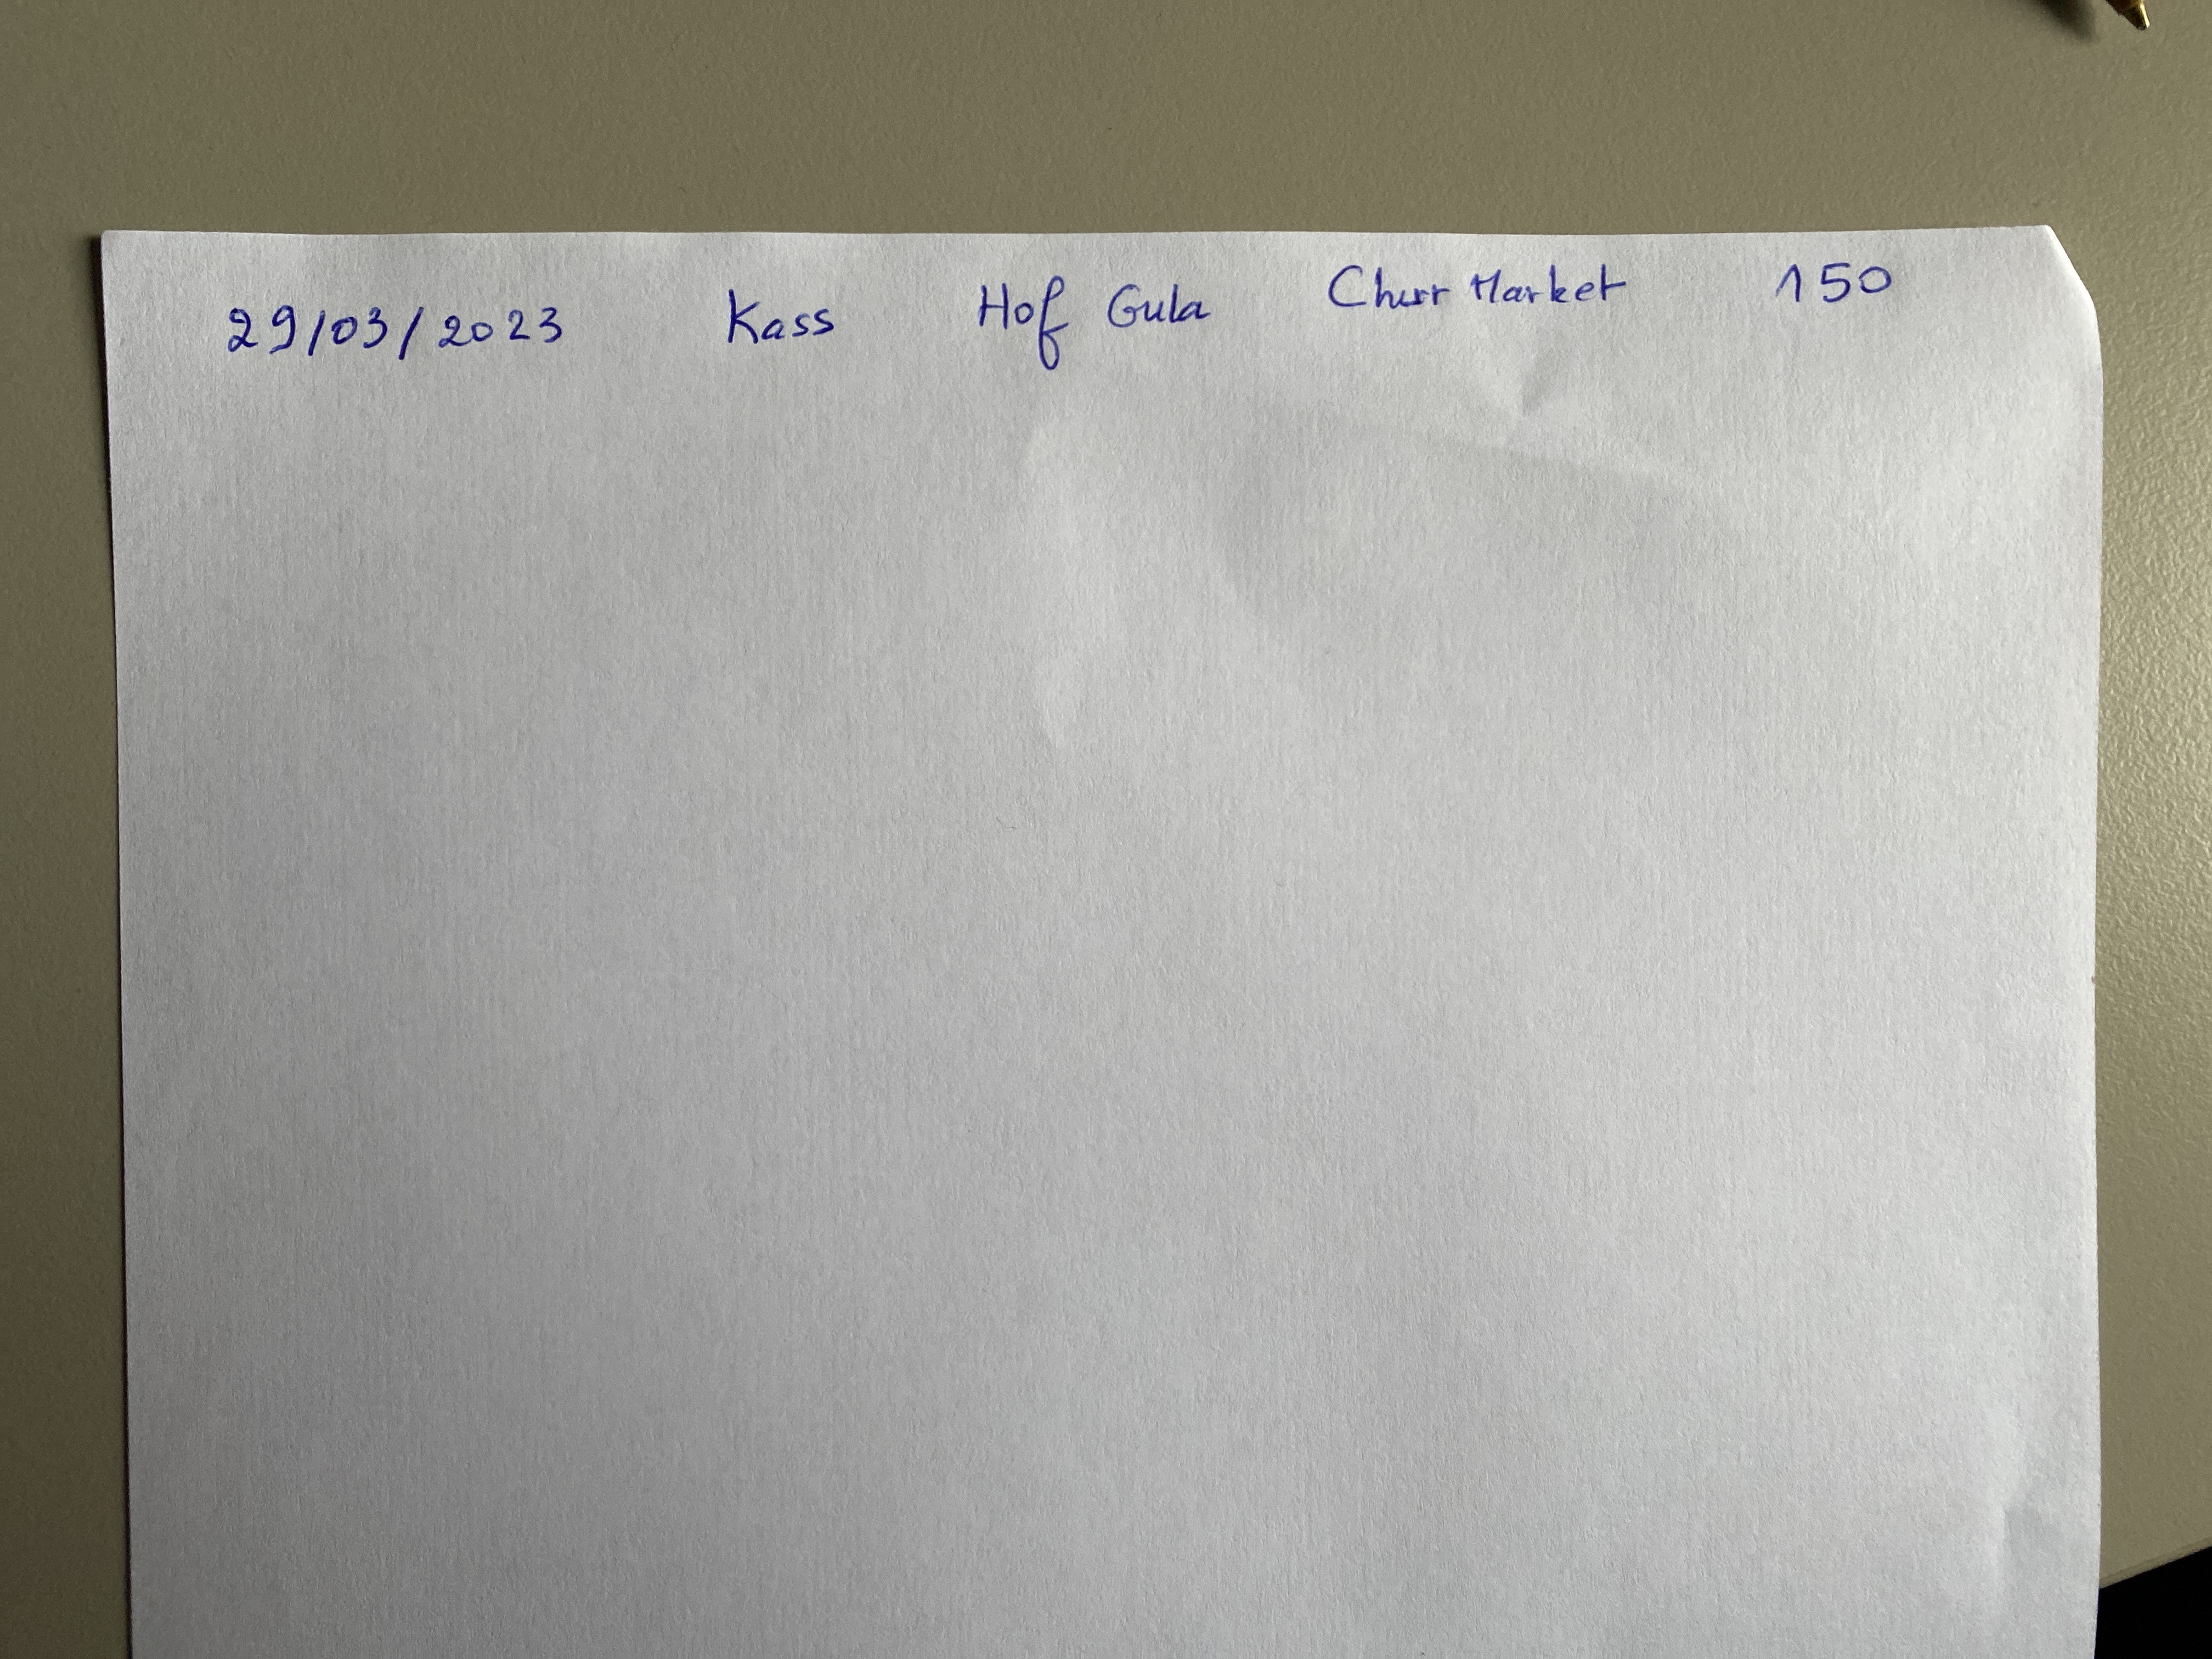 29/03/2023 Kass Hof Gula Churr Market 150